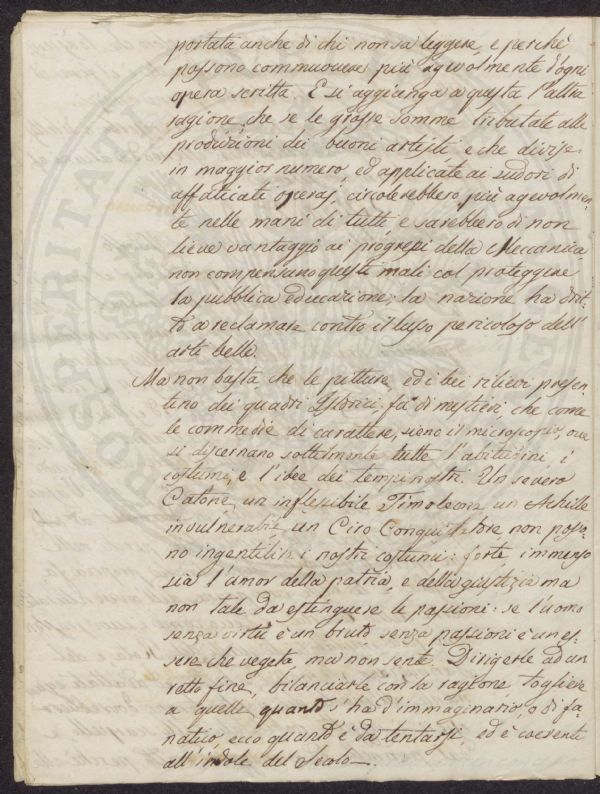 portata anche di chi non sa leggere, e perchè
possono commuovere più agevolmente d'ogni
opera scritta. E si aggiunga a questa l'altra
ragione, che se le grosse somme tributate alle
produzioni dei buoni artisti, e che divise
in maggior numero, ed applicate ai sudori di
affaticati operaj, circolerebbero più agevolmen-
te nelle mani di tutti, e sarebbero di non
lieve vantaggio ai progressi della Meccanica
non compensano questi mali col proteggere
la pubblica educazione; la nazione ha drit-
to a reclamare contro il lusso pericoloso dell'
arti belle.
Ma non basta, che le pitture, ed i bei rilievi presen-
tino dei quadri Istorici, fà di mestieri, che come
le commedie di carattere, sieno il microscopio, ove
si discernano sottilmente tutte l'abitudini i
costumi, e l'idee dei tempi nostri. Un severo
Catone, un inflessibile Timoleone un Achille
invulnerabile un Ciro Conquistatore, non posso-
no ingentilire i nostri costumi: forte immenso
sia l'amor della patria, e della giustizia ma
non tale da estinguere le passioni: se l'uomo
senza virtù è un bruto senza passioni è un es-
sere che vegeta, ma non sente. Dirigerle ad un
retto fine, bilanciarle con la ragione togliere
a quelle quanto v'ha d'immaginario, o di fa-
natico, ecco quanto è da tentarsi ed è coerente
all'indole del Secolo.
PROSPERITATI